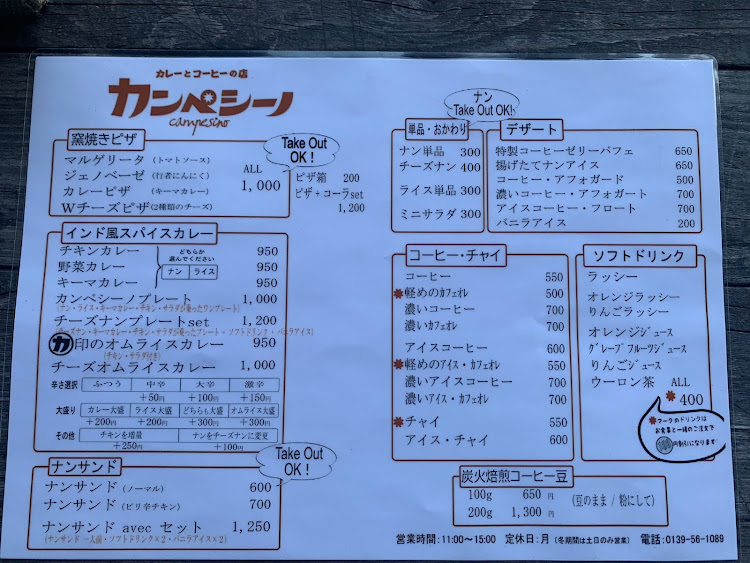 カレーとコーヒーの店
カンペシーノ
campesino
窯焼きピザ
Take Out
OK!
マルゲリータ (トマトソース)
ジェノベーゼ (行者にんにく)
カレーピザ (キーマカレー)
Wチーズピザ(2種類のチーズ)
ALL
1,000
ピザ箱 200
ピザ+コーラset
1,200
インド風スパイスカレー
チキンカレー 950
野菜カレー 950
キーマカレー 950
どちらか
選んでください
ナン ライス
カンペシーノプレート 1,000
(ナン・ライス・キーマカレー・チキン・サラダが乗ったワンプレート)
チーズナンプレートset 1,200
(チーズナン・キーマカレー・チキン・サラダが乗ったプレート・ソフトドリンク・バニラアイス)
カ印のオムライスカレー 950
(チキン・サラダ付き)
チーズオムライスカレー 1,000
辛さ選択 ふつう 中辛 大辛 激辛
+50円 +100円 +150円
大盛り カレー大盛 ライス大盛 どちらも大盛 オムライス大盛
+200円 +200円 +300円 +300円
その他 チキンを増量 ナンをチーズナンに変更
+250円 +100円
ナンサンド
Take Out
OK!
ナンサンド (ノーマル) 600
ナンサンド (ピリ辛チキン) 700
ナンサンド avec セット 1,250
(ナンサンド 一人前・ソフトドリンク×2・バニラアイス×2)
ナン
Take Out OK!
単品・おかわり
ナン単品 300
チーズナン 400
ライス単品 300
ミニサラダ 300
デザート
特製コーヒーゼリーパフェ 650
揚げたてナンアイス 650
コーヒー・アフォガード 500
濃いコーヒー・アフォガート 700
アイスコーヒー・フロート 700
バニラアイス 200
コーヒー・チャイ
コーヒー 550
軽めのカフェオレ 500
濃いコーヒー 700
濃いカフェオレ 700
アイスコーヒー 600
軽めのアイス・カフェオレ 550
濃いアイスコーヒー 700
濃いアイス・カフェオレ 700
チャイ 550
アイス・チャイ 600
ソフトドリンク
ラッシー
オレンジラッシー
りんごラッシー
オレンジジュース
グレープフルーツジュース
りんごジュース
ウーロン茶 ALL
400
マークのドリンクは
お食事と一緒のご注文で
円割引になります
炭火焙煎コーヒー豆
100g 650 円
200g 1,300 円
(豆のまま / 粉にして)
営業時間:11:00〜15:00 定休日:月 (冬期間は土日のみ営業) 電話:0139-56-1089